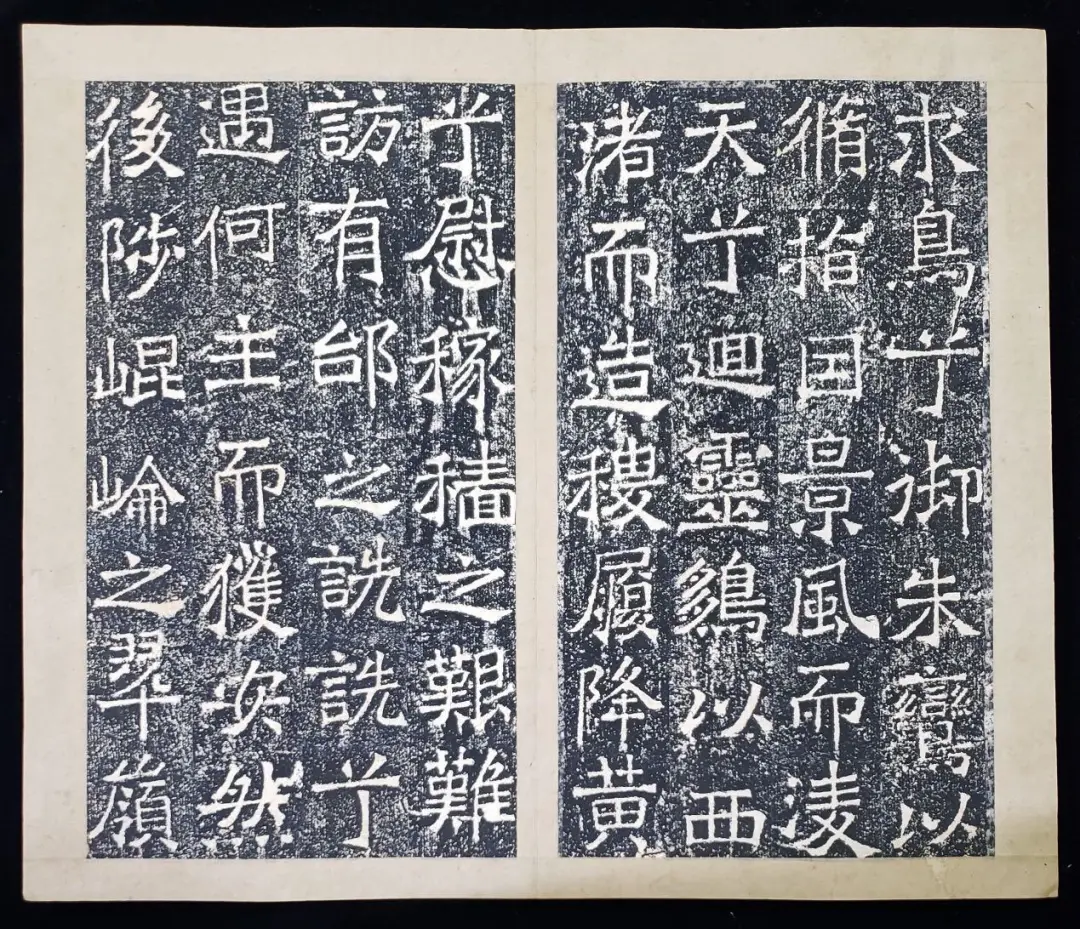 求鳥兮御朱鸞以
脩指因景風而淩
天兮迴靈鷄以西
渚而造稷履降黃
兮慰稼穡之艱難
訪有邰之詵詵兮
遇何主而獲安然
後陟崐崘之翠嶺